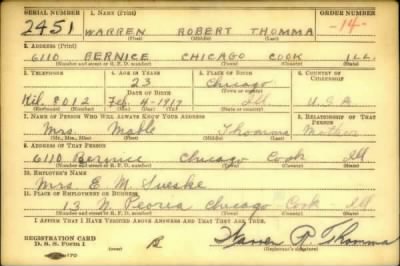 SERIAL NUMBER 1. NAME (Print) ORDER NUMBER
2451 WARREN ROBERT THOMMA -14-
(First) (Middle) (Last)
2. ADDRESS (Print)
6110 BERNICE CHICAGO COOK ILL.
(Number and street or R. F. D. number) (Town) (County) (State)
3. TELEPHONE 4. AGE IN YEARS 5. PLACE OF BIRTH 6. COUNTRY OF CITIZENSHIP
23 Chicago
DATE OF BIRTH (Town or county)
Kil. 8012 Feb. 4-1917 Ill. U.S.A.
(Exchange) (Number) (Mo.) (Day) (Yr.) (State or country)
7. NAME OF PERSON WHO WILL ALWAYS KNOW YOUR ADDRESS 8. RELATIONSHIP OF THAT PERSON
Mrs. Mable Thomma Mother
(Mr., Mrs., Miss) (First) (Middle) (Last)
9. ADDRESS OF THAT PERSON
6110 Bernice Chicago Cook Ill
(Number and street or R. F. D. number) (Town) (County) (State)
10. EMPLOYER'S NAME
Mrs E. M. Sueske
11. PLACE OF EMPLOYMENT OR BUSINESS
13 N. Peoria Chicago Cook Ill
(Number and street or R. F. D. number) (Town) (County) (State)
I AFFIRM THAT I HAVE VERIFIED ABOVE ANSWERS AND THAT THEY ARE TRUE.
REGISTRATION CARD
D. S. S. Form 1 Warren R. Thomma
(Registrant's signature)